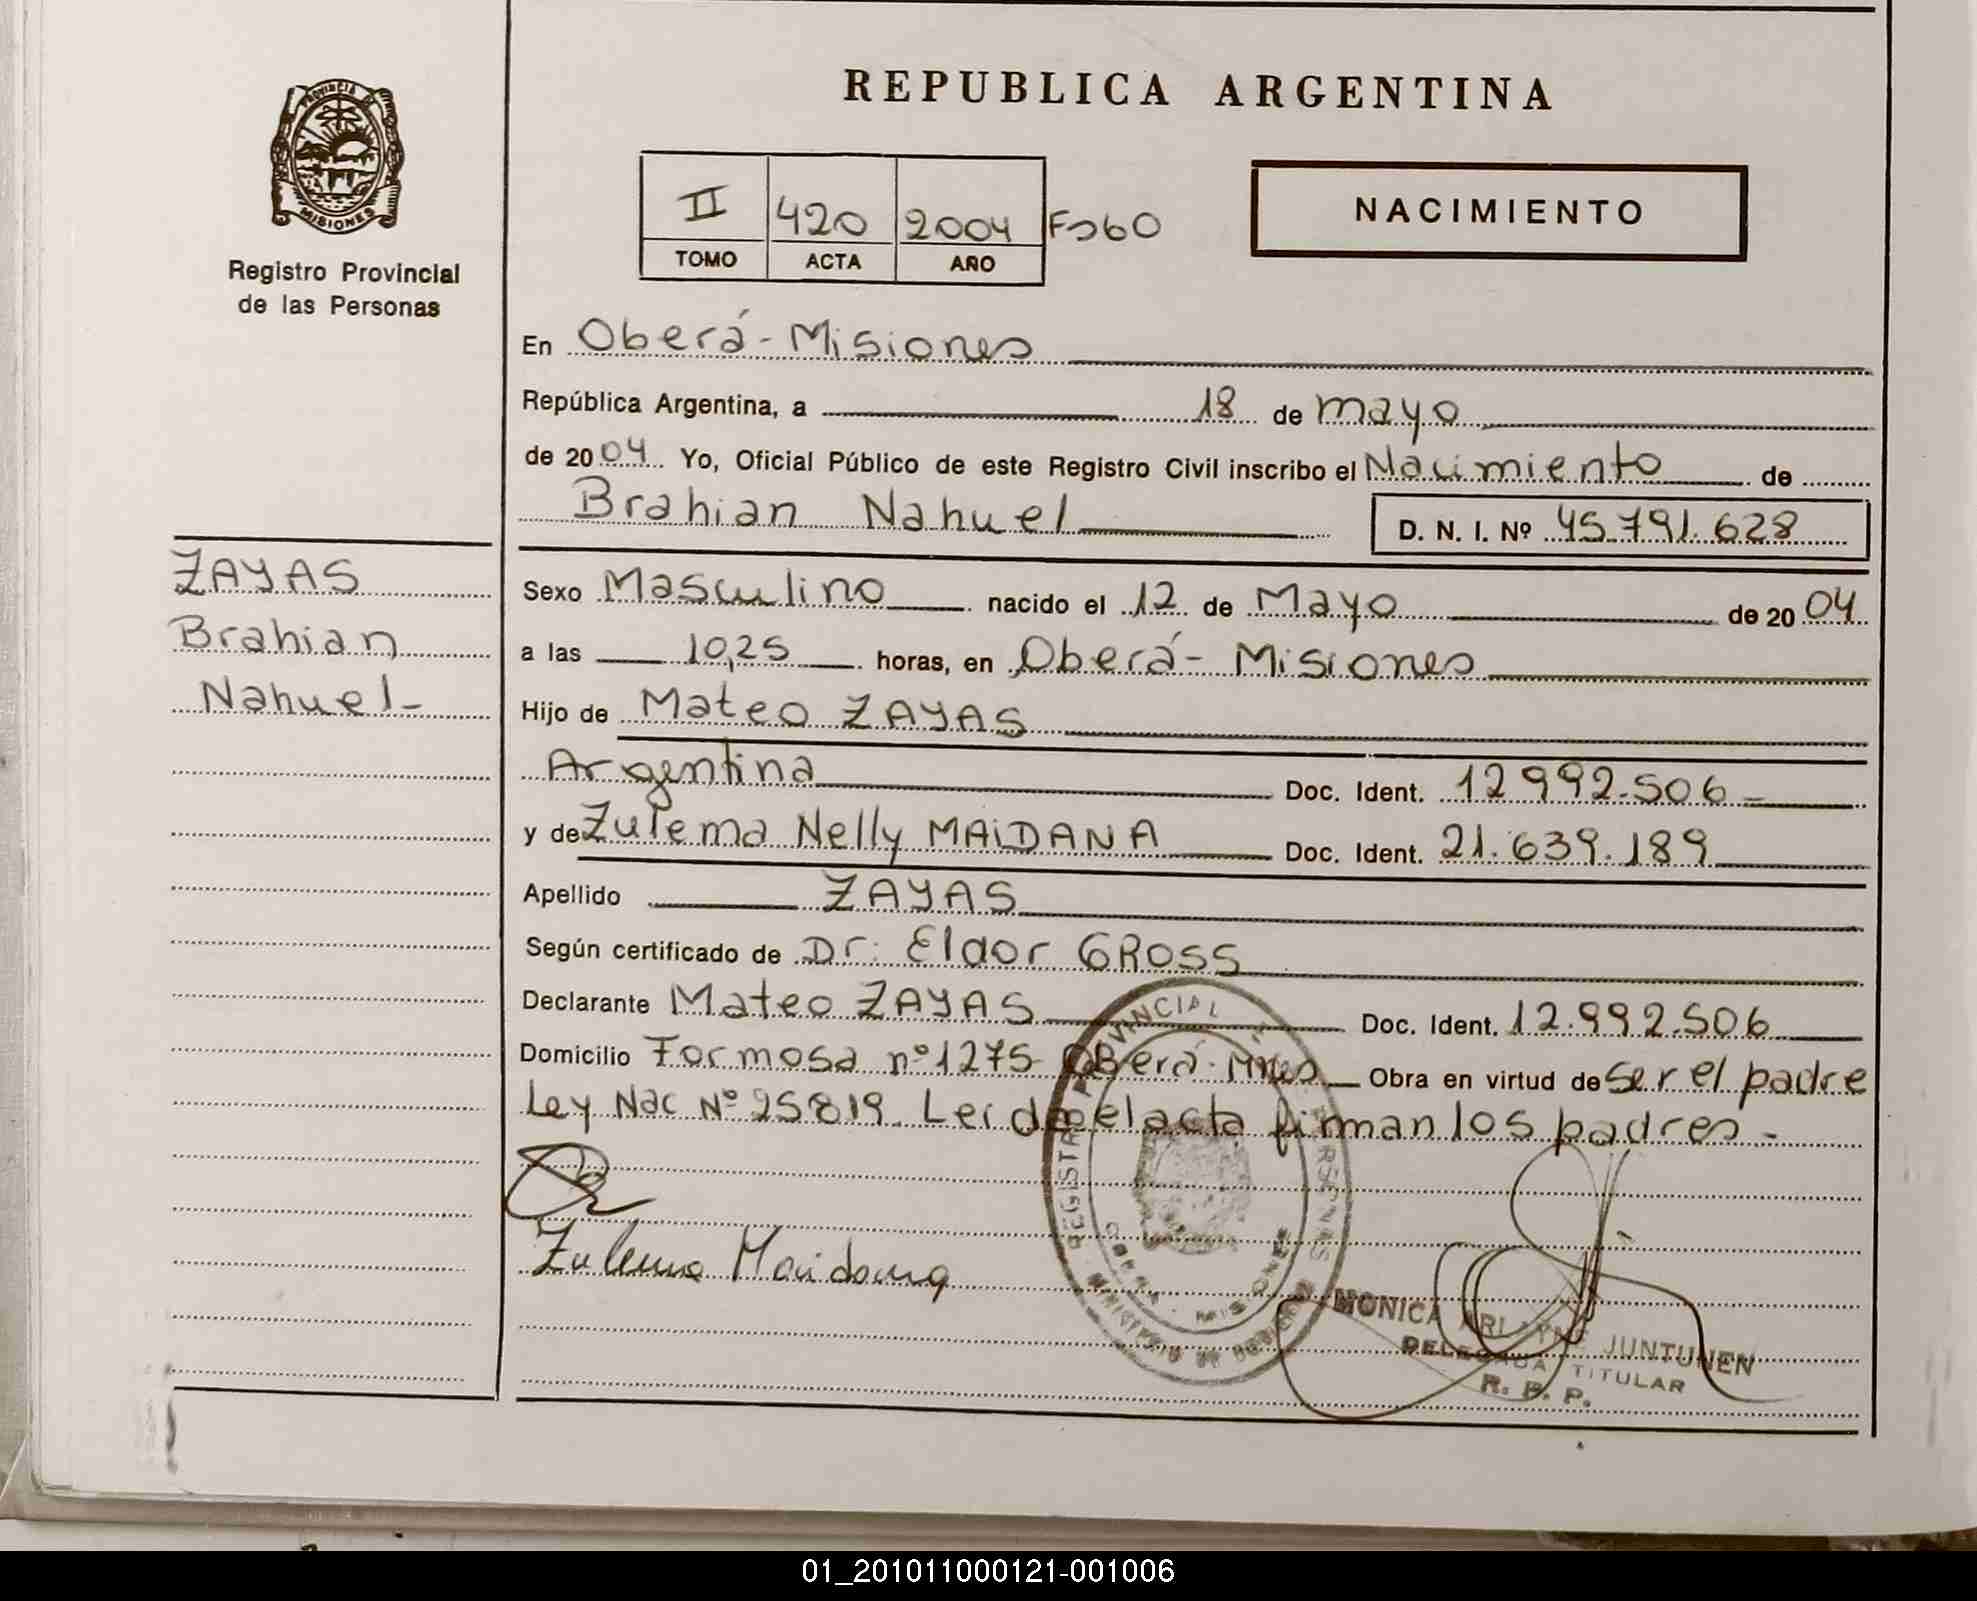 REPUBLICA ARGENTINA
PROVINCIA DE
MISIONES
Registro Provincial
de las Personas
II 420 2004 Fo60
TOMO ACTA AÑO
NACIMIENTO
En Oberá - Misiones
República Argentina, a 18 de mayo
de 2004 Yo, Oficial Público de este Registro Civil inscribo el Nacimiento de
Brahian Nahuel D. N. I. Nº 45.791.628
ZAYAS
Brahian
Nahuel-
Sexo Masculino nacido el 12 de Mayo de 2004
a las 10,25 horas, en Oberá - Misiones
Hijo de Mateo ZAYAS
Argentina Doc. Ident. 12992.506-
y de Zulema Nelly MAiDANA Doc. Ident. 21.639.189
Apellido ZAYAS
Según certificado de Dr. Eldor GROSS
Declarante Mateo ZAYAS Doc. Ident. 12.992.506
Domicilio Formosa nº1275 OBerá-Mnes Obra en virtud de Ser el padre
Ley Nac Nº 25819. Leida el acta firman los padres-
Zulema Maidana
REGISTRO PROVINCIAL DE LAS PERSONAS
MINISTERIO DE GOBIERNO
OBERA - MISIONES
MONICA ARLAYNE JUNTUNEN
DELEGADA TITULAR
R. P. P.
01_201011000121-001006